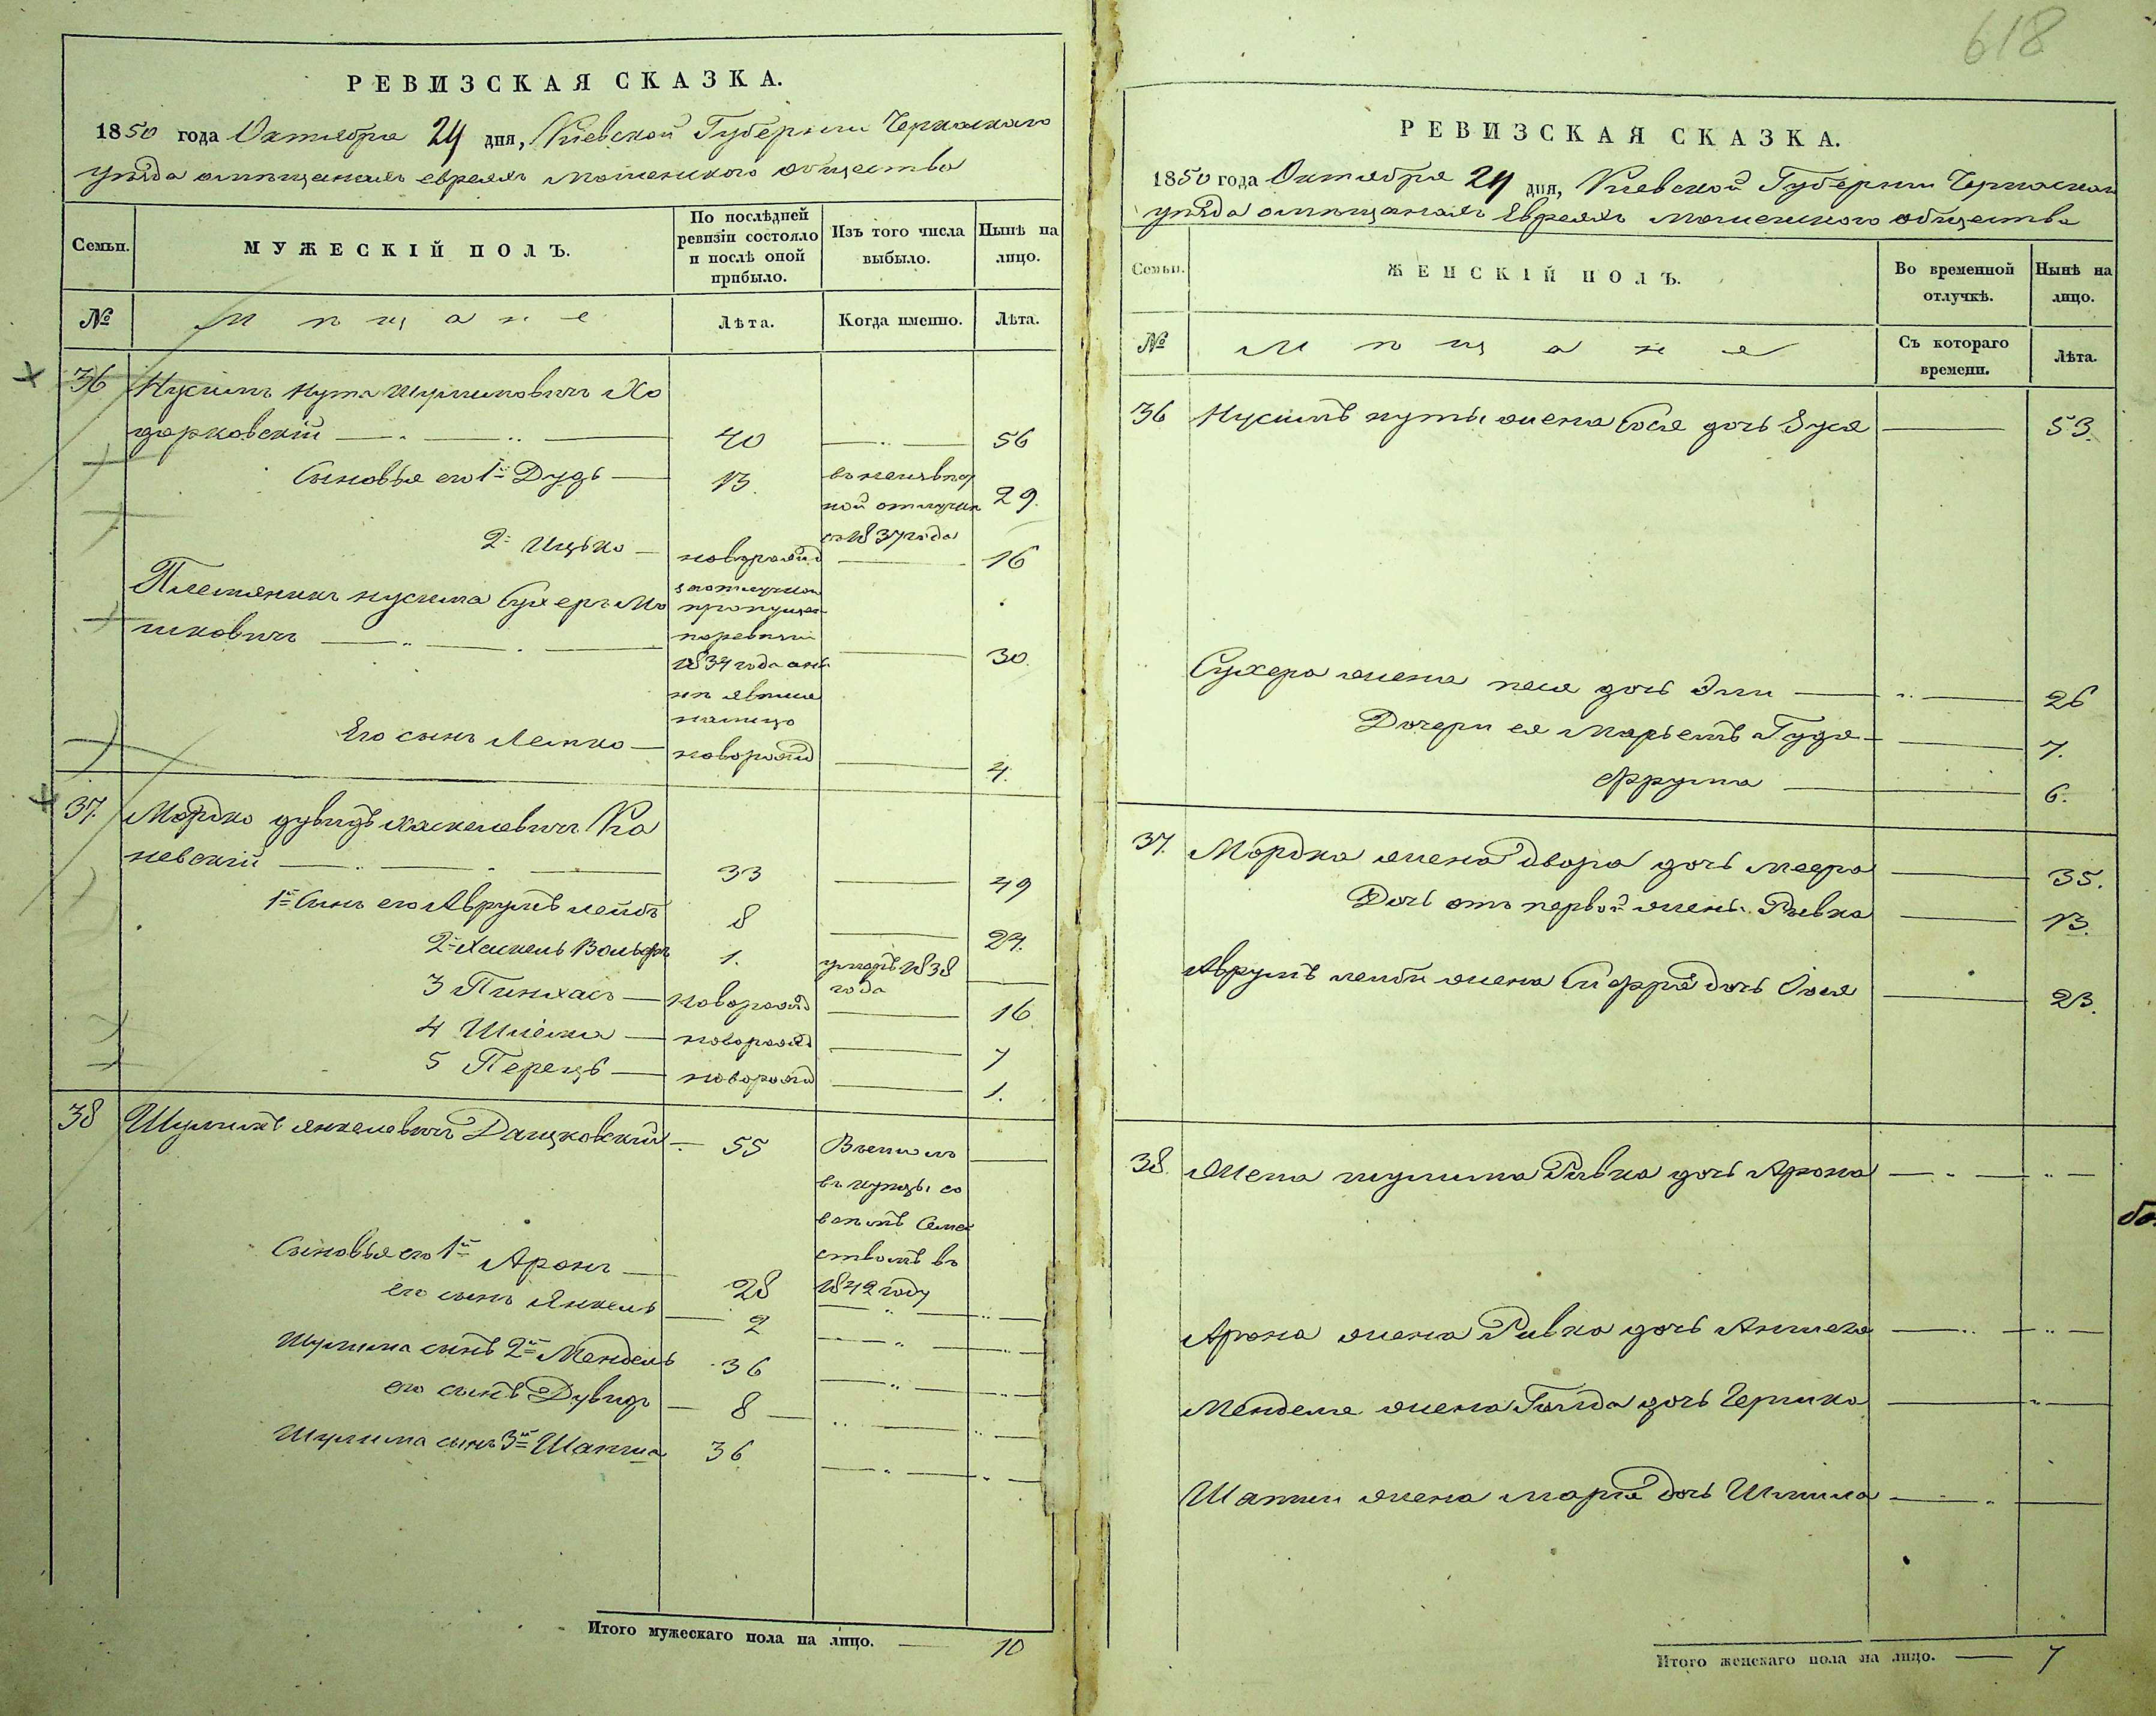 618
РЕВИЗСКАЯ СКАЗКА.
1850 года Октября 24 дня, Киевской Губернии Черкаскаго
уѣзда о мѣщанахъ евреяхъ мошенского общества
Семьи.
МУЖЕСКІЙ ПОЛЪ.
По послѣдней ревизіи состояло и послѣ оной прибыло.
Изъ того числа выбыло.
Нынѣ на лицо.
№
Мѣщане
Лѣта.
Когда именно.
Лѣта.
36 Нусимъ Нута Шулимовичъ Хо
дорковскій 40 56
Сыновья его 1й Дудь 13 29.
ной отлучкѣ
съ 1837 года
2й Ицько новорожд 16
Племяникъ нусима Сухеръ Мо
шковичъ
пропущен
по ревизіи
1834 года 30.
на лицо
Его сынъ Лейпко новорожд 4.
37. Мордко дувидъ хаскелевичъ Ка
невскій 33 49
1й Сынъ его Аврумъ лейбъ 8 24.
2й Хаскель Вольфъ 1. умеръ 1838
года
3 Пинхасъ новорожд 16
4 Шлёма новорожд 7
5 Перецъ новорожд 1.
38 Шулимъ янкелевичъ Дацковскій 55
въ купцы со
всѣмъ Семей
ствомъ въ
1842 году
Сыновья его 1й Аронъ 28
его сынъ Янкель 2
Шулима сынъ 2й Мендель 36
его сынъ Дувидъ 8
Шулима сынъ 3й Шапша 36
Итого мужескаго пола на лицо. 10
РЕВИЗСКАЯ СКАЗКА.
1850 года Октября 24 дня, Киевской Губернии Черкаскаго
уѣзда о мѣщанахъ Евреяхъ мошенского общества
Семьи.
ЖЕНСКІЙ ПОЛЪ.
Во временной отлучкѣ.
Нынѣ на лицо.
№
Мѣщане
Съ котораго времени.
Лѣта.
36 Нусимъ нуты жена Бося дочь Зуся 53.
Сухера жена песя дочь Эли 26
Дочери ея Марьемъ Гудя 7.
Фрума 6.
37. Мордка жена Двора дочь меера 35.
Дочь отъ первой жены Ривка 13.
Аврумъ лейби жена дочь 23.
38. Жена шулима Ривка дочь Арона
Арона жена Ривка дочь Аншеля
Менделя жена Голда дочь Гершка
Шапши жена Марія дочь Шмила
Итого женскаго пола на лицо. 7